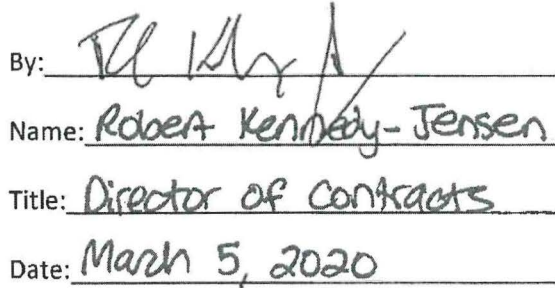 By:
Name: Robert Kennedy-Jensen
Title: Director of Contracts
Date: March 5, 2020